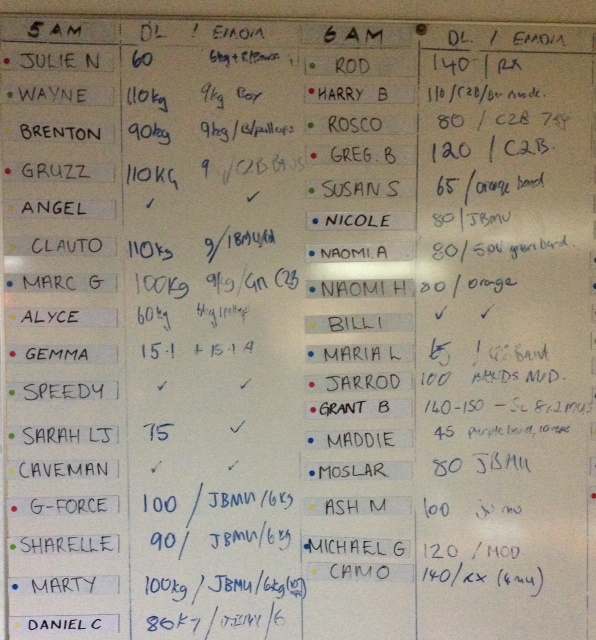 5 AM DL / EMOM
JULIE N 60
WAYNE 110kg 9kg Box
BRENTON 90kg 9kg/
GRUZZ 110KG 9 / C2B
ANGEL ✓ ✓
CLAUTO 110kg 9/
MARC G 100kg 9kg/Gn C2B
ALYCE 60kg
GEMMA 15.1 + 15.1 A
SPEEDY ✓ ✓
SARAH LJ 75 ✓
CAVEMAN ✓ ✓
G-FORCE 100 / JBMU/6kg
SHARELLE 90/ JBMU/6kg
MARTY 100kg / JBMU/6kg
DANIEL C / JBMU / 6
6 AM DL / EMOM
ROD 140 / RX
HARRY B 110/C2B/
ROSCO 80 / C2B
GREG. B 120 / C2B.
SUSAN S 65 / orange band
NICOLE 80/JBMU
NAOMI. A 80/ green band.
NAOMI H 80 / orange
BILLI ✓ ✓
MARIA L / Band
JARROD 100 BANDS MOD.
GRANT B 140-150 - Sc
MADDIE 45 purple band,
MOSLAR 80 JBMU
ASH M 100
MICHAEL G 120 / MOD
CAMO 140/RX